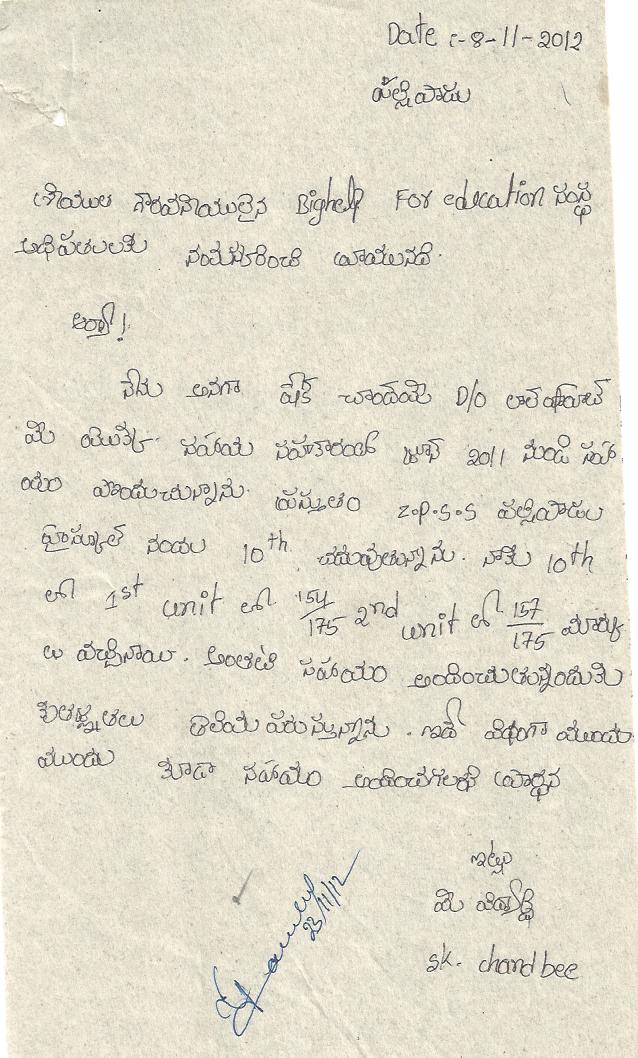 Date :- 8-11-2012
పల్లెపాడు
శ్రీయుత గౌరవనీయులైన Bighelp For education సంస్థ
అధిపతులకు నమస్కరించి వ్రాయునది.
ఆర్యా!
నేను అనగా షేక్ చాందబి D/O లాల్
మీ యొక్క సహాయ సహకారంతో జూన్ 2011 నుండి సహా
యం పొందుచున్నాను. ప్రస్తుతం Z.P.S.S పల్లెపాడు
హైస్కూల్ నందు 10th చదువుతున్నాను. నాకు 10th
లో 1st unit లో 154/175 2nd unit లో 157/175 మార్కు
లు వచ్చినాయి. అంతటి సహాయం అందించుతున్నందుకు
కృతజ్ఞతలు తెలియపరుస్తున్నాను. ఇదే విధంగా ముందు
ముందు కూడా సహాయం అందించగలరని ప్రార్థన
ఇట్లు
మీ విద్యార్థి
sk. chandbee
23/11/12